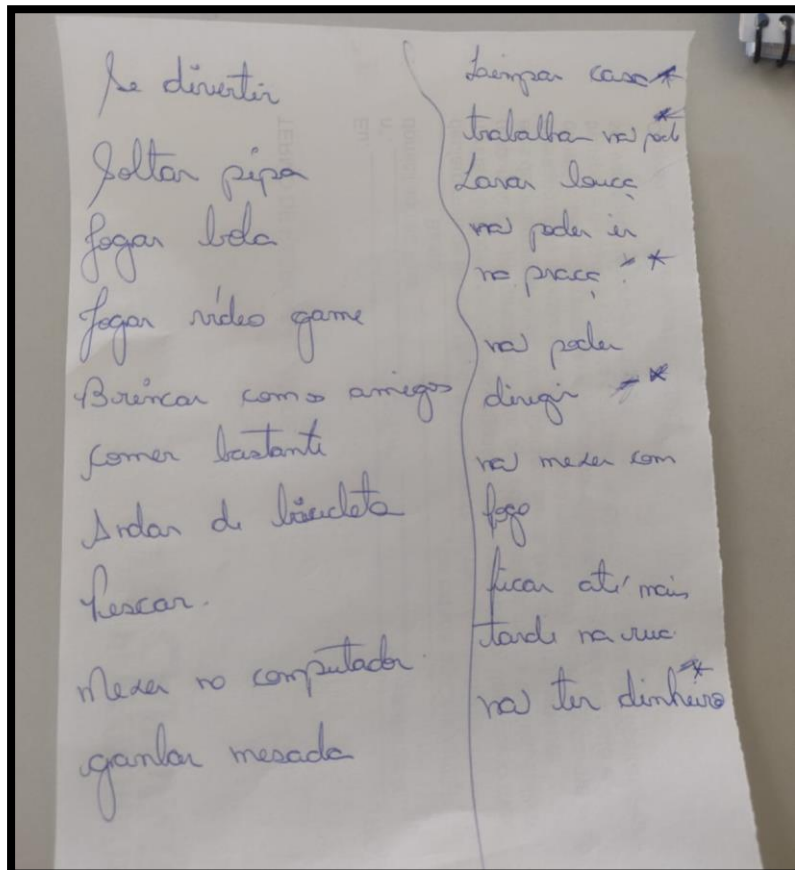 Se divertir
Soltar pipa
Jogar bola
Jogar vídeo game
Brincar com os amigos
comer bastante
Andar de bicicleta
Pescar.
Mexer no computador
ganhar mesada
Limpar casa *
trabalhar não pode *
Lavar louça
não poder ir
na praça *
não poder
dirigir *
não mexer com
fogo
ficar até mais
tarde na rua
não ter dinheiro *